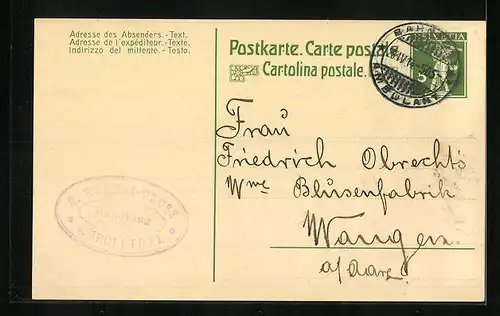 Adresse des Absenders. - Text.
Adresse de l'expéditeur. - Texte.
Indirizzo del mittente. - Testo.
Postkarte. Carte postale.
Cartolina postale.
BAHN
HELVETIA
5
AMBULANT
Frau
Friedrich Obrecht's
Wwe Blusenfabrik
Wangen.
a/Aare.